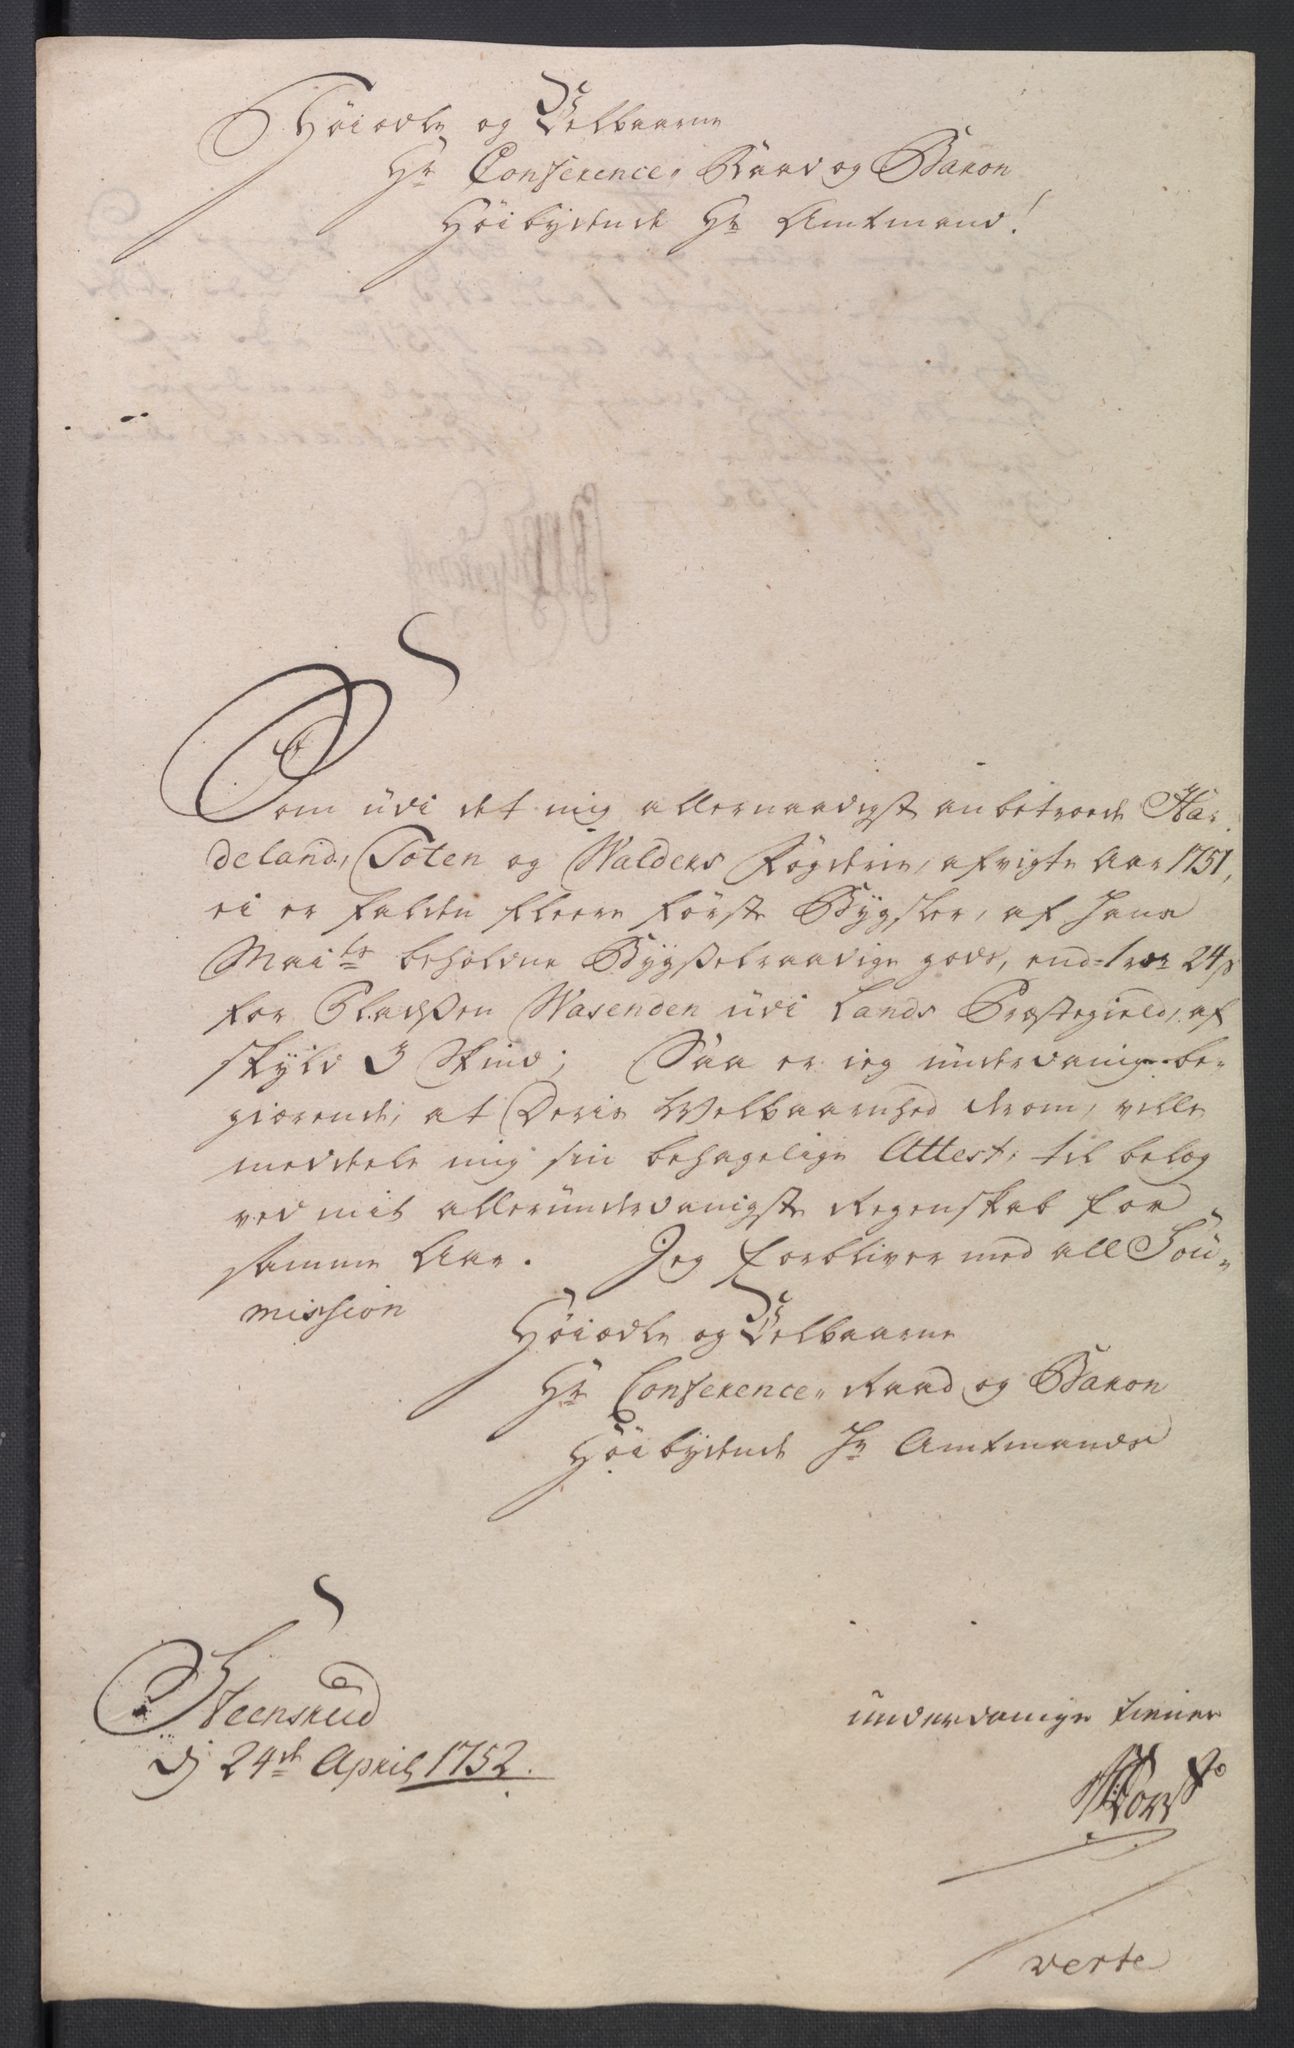 Høiædle og Velbaarne
Hr Conference, Raad og Baron
Høibydende Hr Amtmand!
Som udi det mig allernaadigst anbetroede Ha,
deland, Toten og Walders Fogderie, afvigte Aar 1751,
ei er falden fleere Første Bygsler, af Hans
Maits beholdne Bygselraadige gods, end 1 rdr 24 s
for Pladsen Wasenden udi Lands Præstegield, af
skyld 3 Skind; Saa er jeg underdanig be,
giærende, at Deris Welbaarnhed derom, ville
meddele mig sin behagelige Attest, til belæg
ved mit allerunderdanigste Regenskab for
samme Aar. Jeg forbliver med all Sou,,
mission
Høiædle og Velbaarne
Hr Conference,, Raad og Baron
Høibydende Hr Amtmands
Steensrud
d 24de April 1752.
underdanige tiener
verte